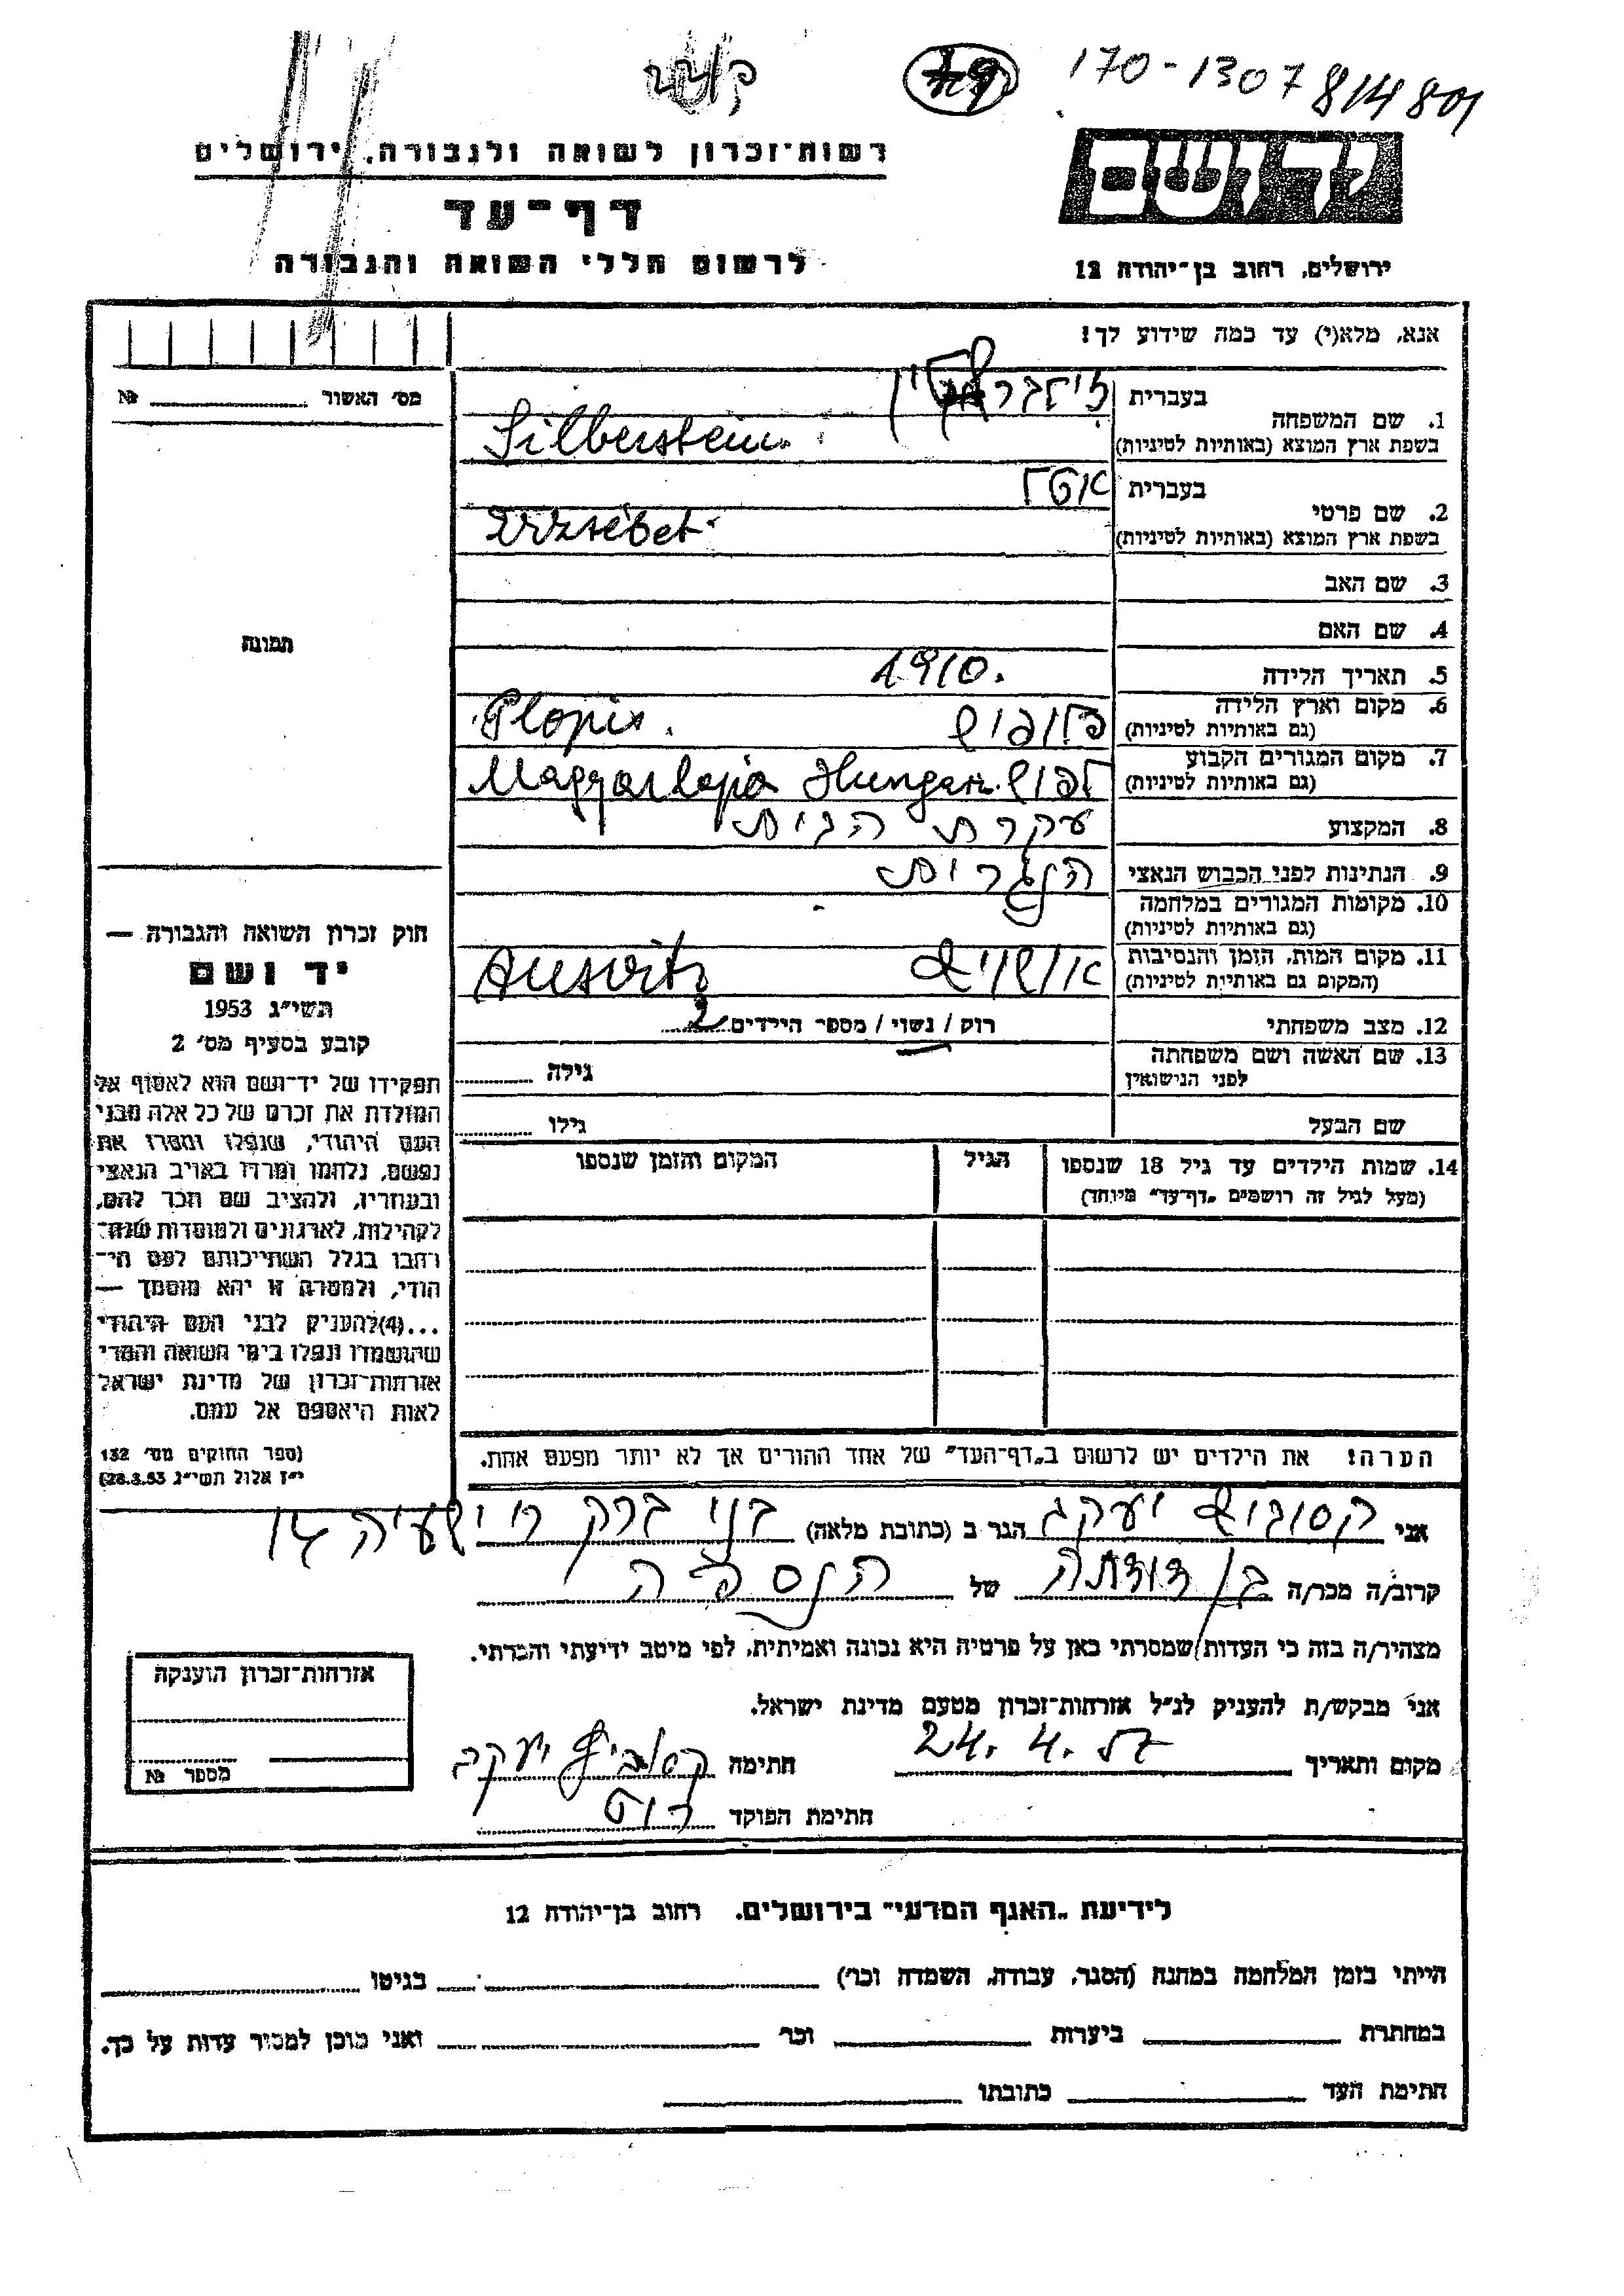 170-1307
814801
49
רשות־זכרון לשואה ולגבורה, ירושלים
יד ושם
דף־עד
לרשום חללי השואה והגבורה
ירושלים, רחוב בן־יהודה 12
אנא, מלא(י) עד כמה שידוע לך!
מס' האשור № ______
תמונה
1. שם המשפחה בעברית זילברשטיין
בשפת ארץ המוצא (באותיות לטיניות) Silberstein
2. שם פרטי בעברית אטל
בשפת ארץ המוצא (באותיות לטיניות) Erzsébet
3. שם האב
4. שם האם
5. תאריך הלידה 1910.
6. מקום וארץ הלידה (גם באותיות לטיניות) פלופיש Plopis.
7. מקום המגורים הקבוע (גם באותיות לטיניות) לפוש Magyarlapos Hungar.
8. המקצוע עקרת הבית
9. הנתינות לפני הכבוש הנאצי הונגרית
10. מקומות המגורים במלחמה (גם באותיות לטיניות) -
11. מקום המות, הזמן והנסיבות (המקום גם באותיות לטיניות) אושויץ Auswitz
12. מצב משפחתי רווק / נשוי / מספר הילדים 2
13. שם האשה ושם משפחתה לפני הנישואין גילה
שם הבעל גילו
14. שמות הילדים עד גיל 18 שנספו הגיל המקום והזמן שנספו
(מעל לגיל זה רושמים „דף־עד" מיוחד)
הערה! את הילדים יש לרשום ב„דף־העד" של אחד ההורים אך לא יותר מפעם אחת.
חוק זכרון השואה והגבורה —
יד ושם
תשי"ג 1953
קובע בסעיף מס' 2
תפקידו של יד־ושם הוא לאסוף אל
המולדת את זכרם של כל אלה מבני
העם היהודי, שנפלו ומסרו את
נפשם, נלחמו ומרדו באויב הנאצי
ובעוזריו, ולהציב שם וזכר להם,
לקהילות, לארגונים ולמוסדות שנח־
רבו בגלל השתייכותם לעם הי־
הודי, ולמטרה זו יהא מוסמך —
...(4)להעניק לבני העם היהודי
שהושמדו ונפלו בימי השואה והמרי
אזרחות־זכרון של מדינת ישראל
לאות היאספם אל עמם.
(ספר החוקים מס' 132
י"ז אלול תשי"ג 28.8.53)
אני קסוביץ יעקב הגר ב (כתובת מלאה) בני ברק רח' ישעיה 14
קרוב/ה מכר/ה בן דודתה של הנספה
מצהיר/ה בזה כי העדות שמסרתי כאן על פרטיה היא נכונה ואמיתית, לפי מיטב ידיעתי והכרתי.
אני מבקש/ת להעניק לנ"ל אזרחות־זכרון מטעם מדינת ישראל.
מקום ותאריך 24.4.57 חתימה קסוביץ יעקב
חתימת הפוקד
אזרחות־זכרון הוענקה
מספר №
לידיעת „האגף המדעי" בירושלים, רחוב בן־יהודה 12
הייתי בזמן המלחמה במחנה (הסגר, עבודה, השמדה וכו') ______ בגיטו ______
במחתרת ______ ביערות ______ וכו' ______ ואני מוכן למסור עדות על כך.
חתימת העד ______ כתובתו ______